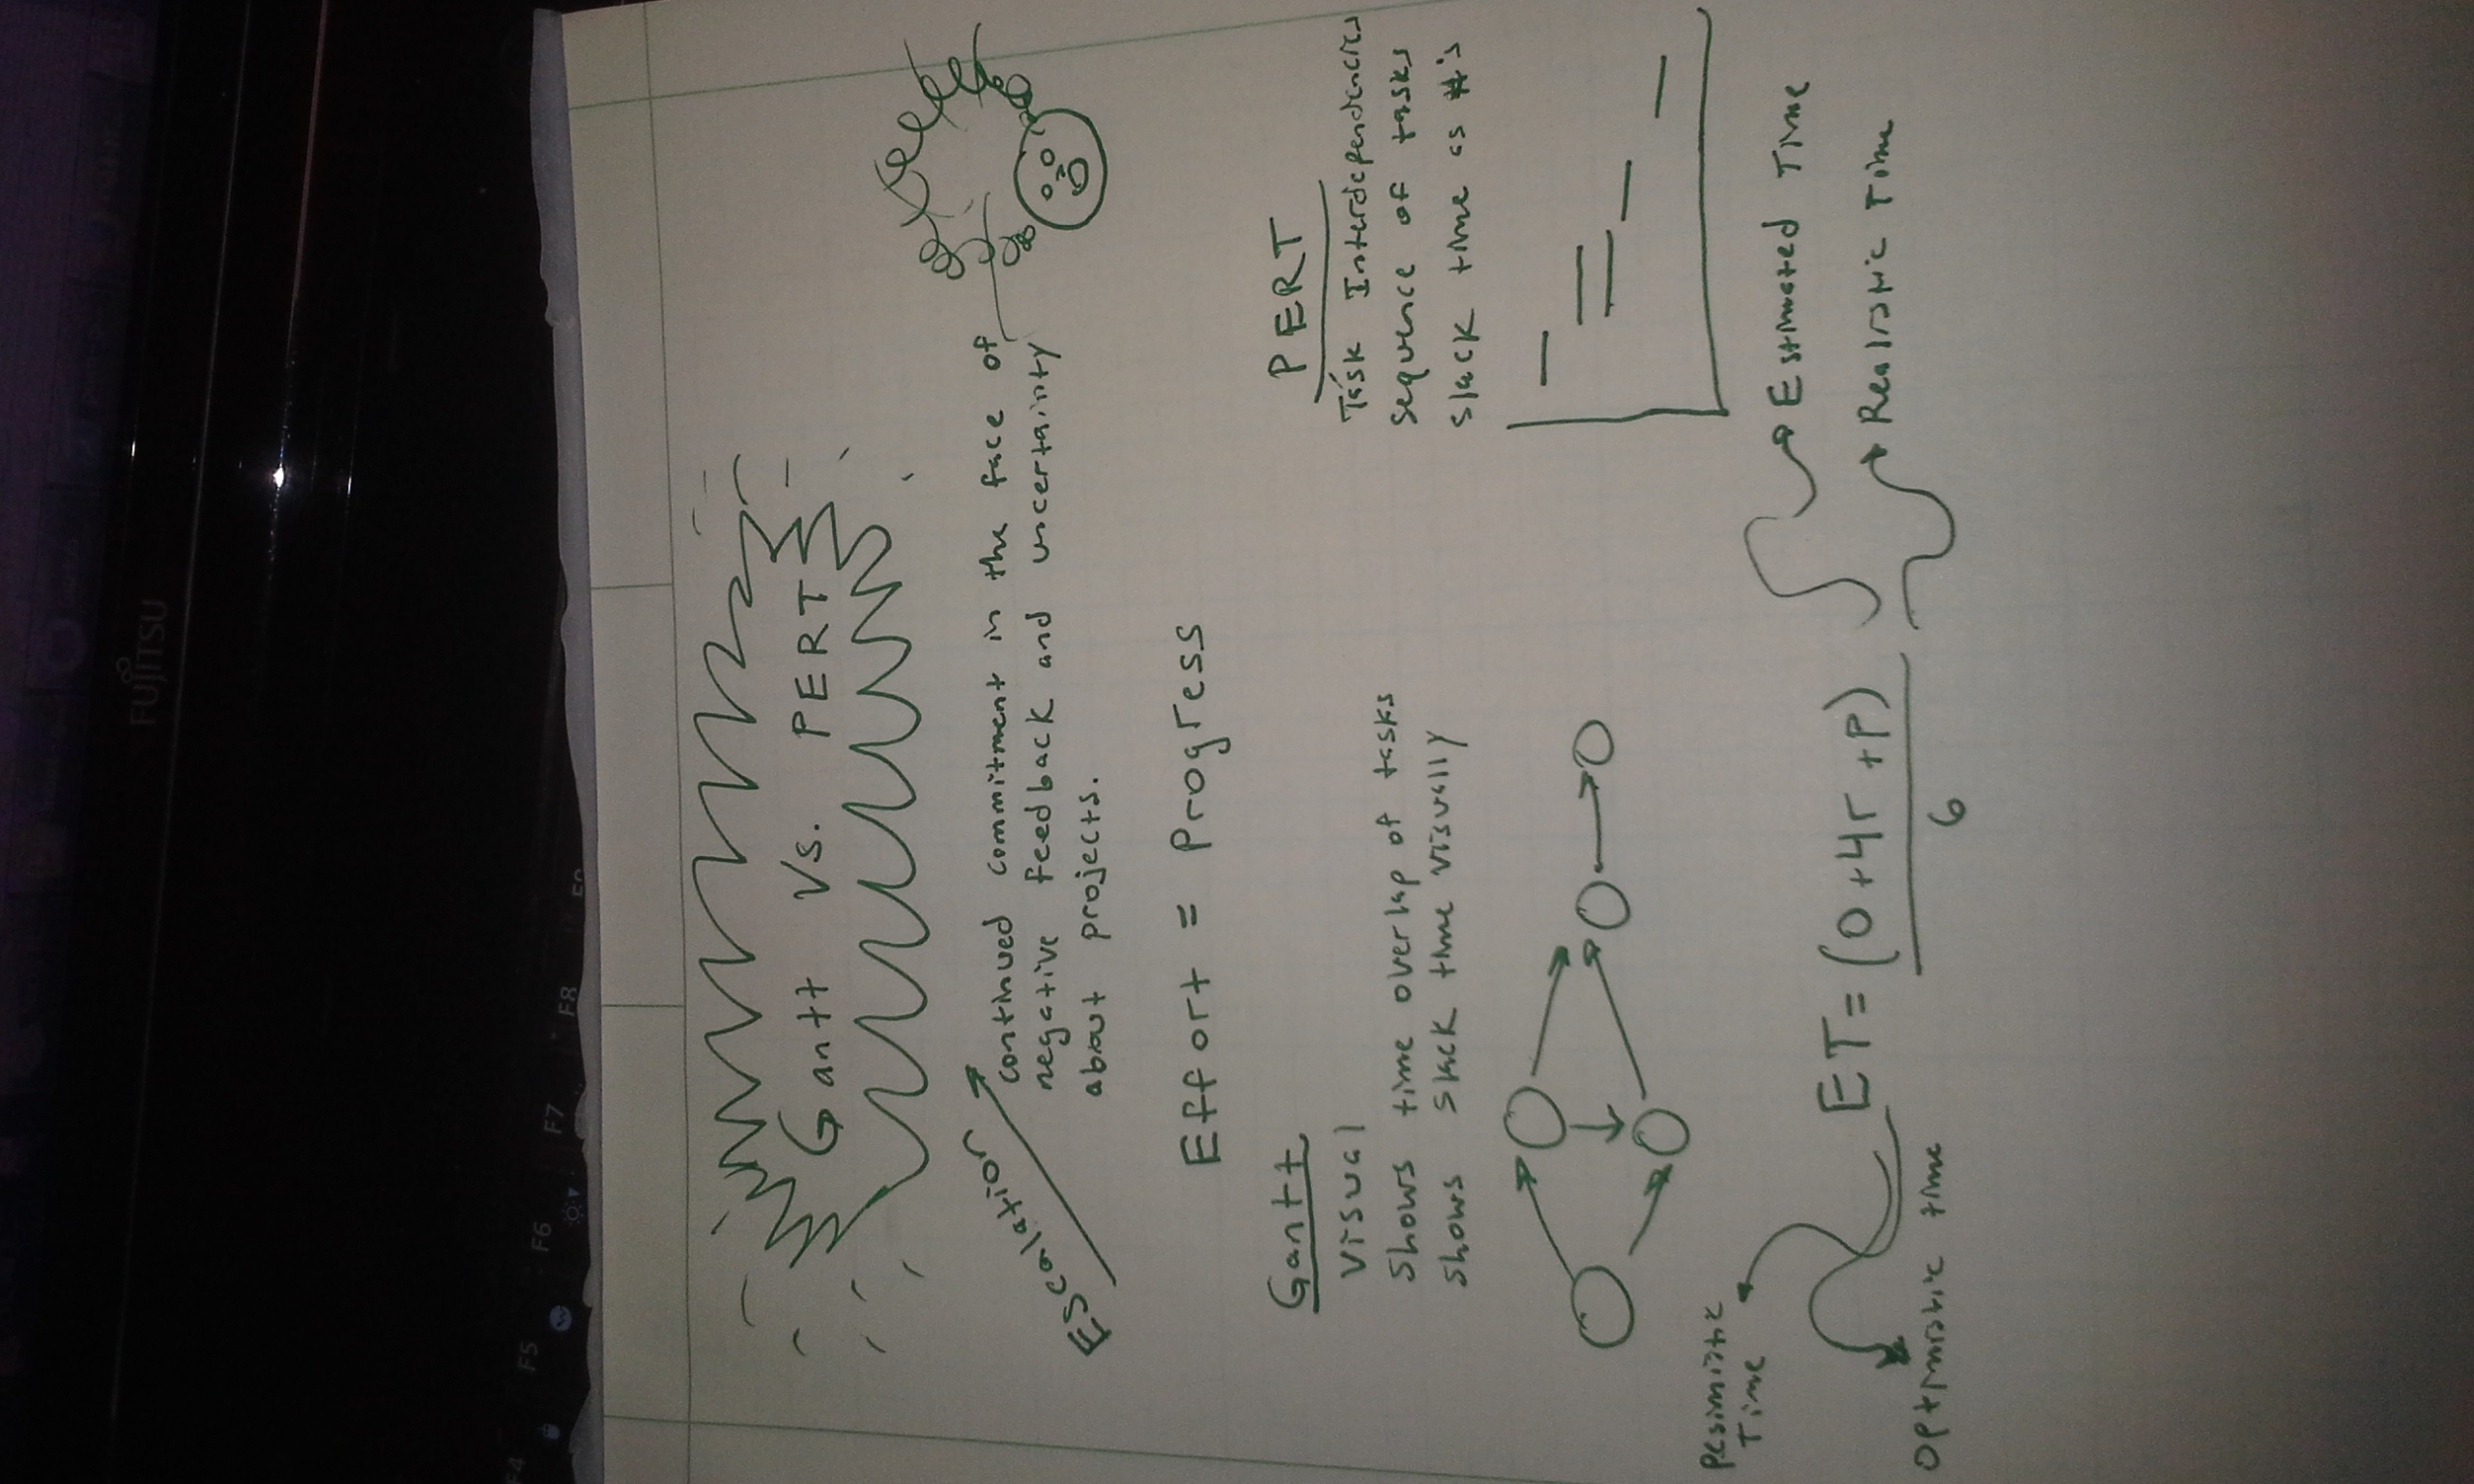 FUJITSU
F4 F5 F6 F7 F8 F9
Gantt Vs. PERT
Escalation
continued commitment in the face of
negative feedback and uncertainty
about projects.
Effort = Progress
Gantt
Visual
Shows time overlap of tasks
Shows Slack time visually
PERT
Task Interdependencies
sequence of tasks
slack time as #'s
Pesimistic
Time
Optimistic time
ET = (O + 4r + P)
6
Estimated Time
Realistic Time